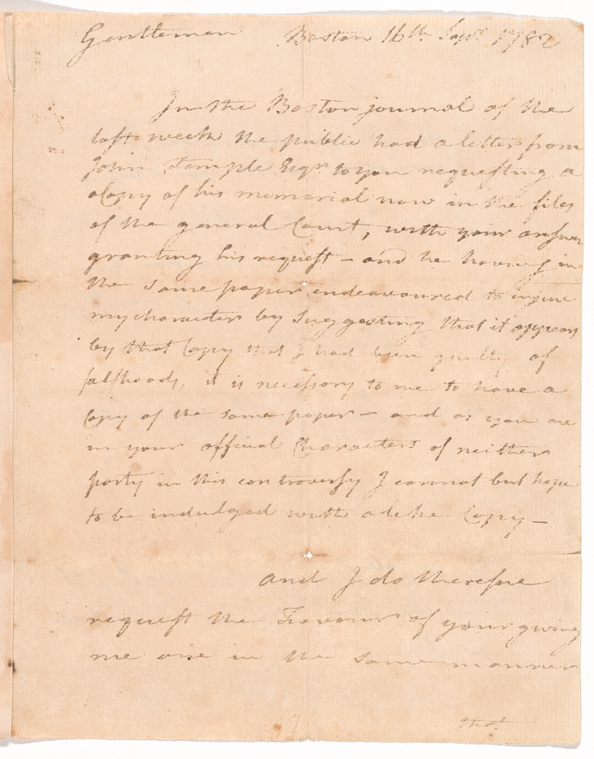 Gentlemen Boston 16th Sepr. 1782
In the Boston journal of the
last week the public had a letter from
John Temple Esqr to you requesting a
Copy of his memorial now in the files
of the general Court, with your answer
granting his request – and he having in
the same paper endeavoured to injure
my character by suggesting that it appears
by that Copy that I had been guilty of
falshoods, it is necessary to me to have a
Copy of the same paper – and as you are
in your official Characters of neither
party in this controversy I cannot but hope
to be indulged with a like Copy –
and I do therefore
request the Favour of your giving
me one in the same manner
that